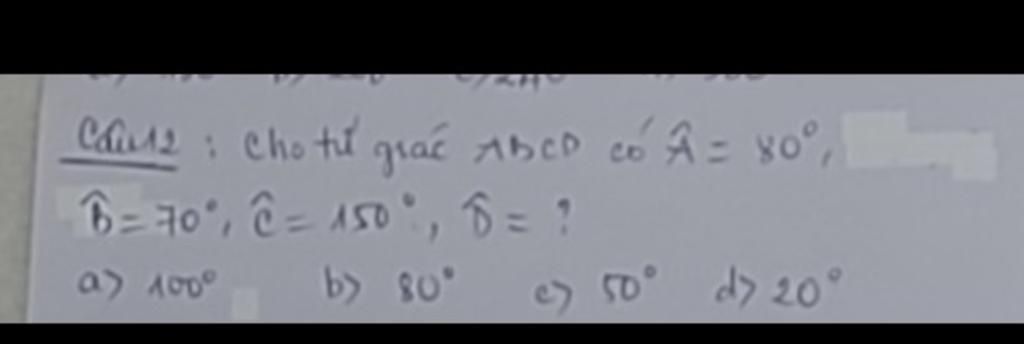 Câu 12 : Cho tứ giác ABCD có Â = 80°,
B̂ = 70°, Ĉ = 150°, D̂ = ?
a> 100° b> 80° c> 50° d> 20°